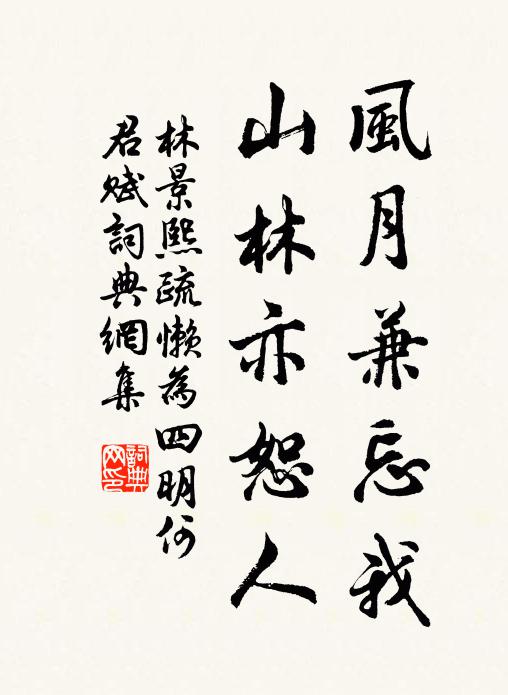 風月兼忘我
山林亦恕人
林景熙疏懶為四明何
君賦詞典網集
詞典
网印